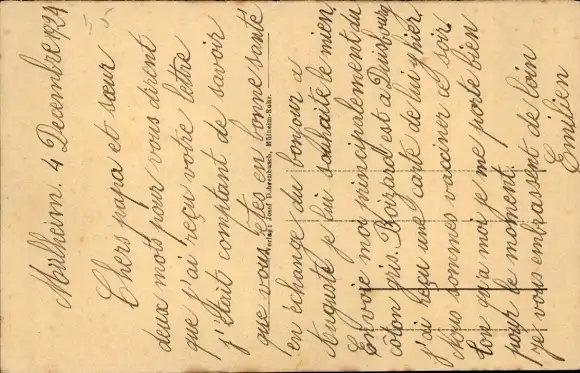 Mülheim. 4 Decembre 1924
Chers papa et sœur
deux mots pour vous dirent
que j'ai reçu votre lettre
j'était comptant de savoir
que vous êtes en bonne santé
Verlag: Josef Dohrenbusch, Mülheim-Ruhr.
en échange du bonjour a
Auguste je lui souhaite le mien,
Envoie moi principalement du
côton gris. Boizard est a Duisbourg
j'ai reçu une carte de lui hier,
Nous sommes vacciner ce soir
ton qu'a moi je me porte bien
pour le moment.
je vous embrassent de loin
Emilien